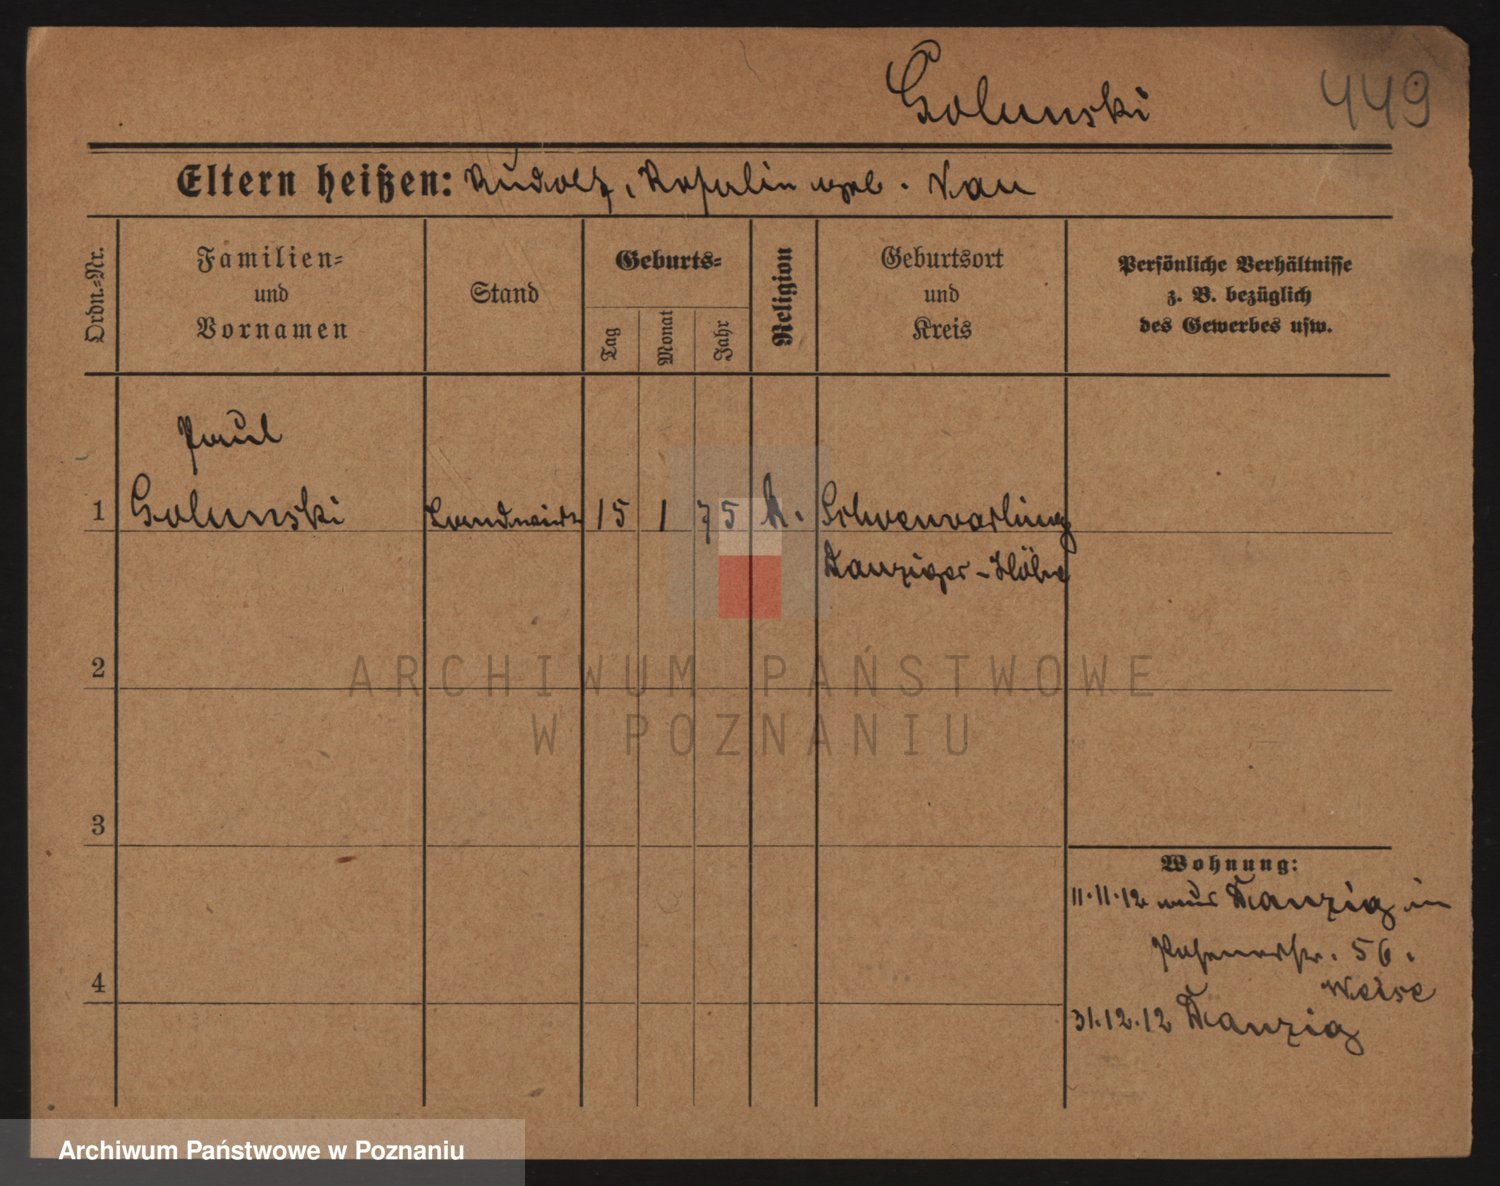 Golunski 449
Eltern heißen: Rudolf, Rosalin geb. Nau
Ordn.-Nr.
Familien-
und
Vornamen
Stand
Geburts-
Tag
Monat
Jahr
Religion
Geburtsort
und
Kreis
Persönliche Verhältnisse
z. B. bezüglich
des Gewerbes usw.
Paul
1 Golunski Landwirt 15 1 75 k. Schoenwarling
Danziger-Höhe
2
ARCHIWUM PAŃSTWOWE
W POZNANIU
3
Wohnung:
11.11.12 aus Danzig in
Posenerstr. 56.
Weise
4
31.12.12 Danzig
Archiwum Państwowe w Poznaniu